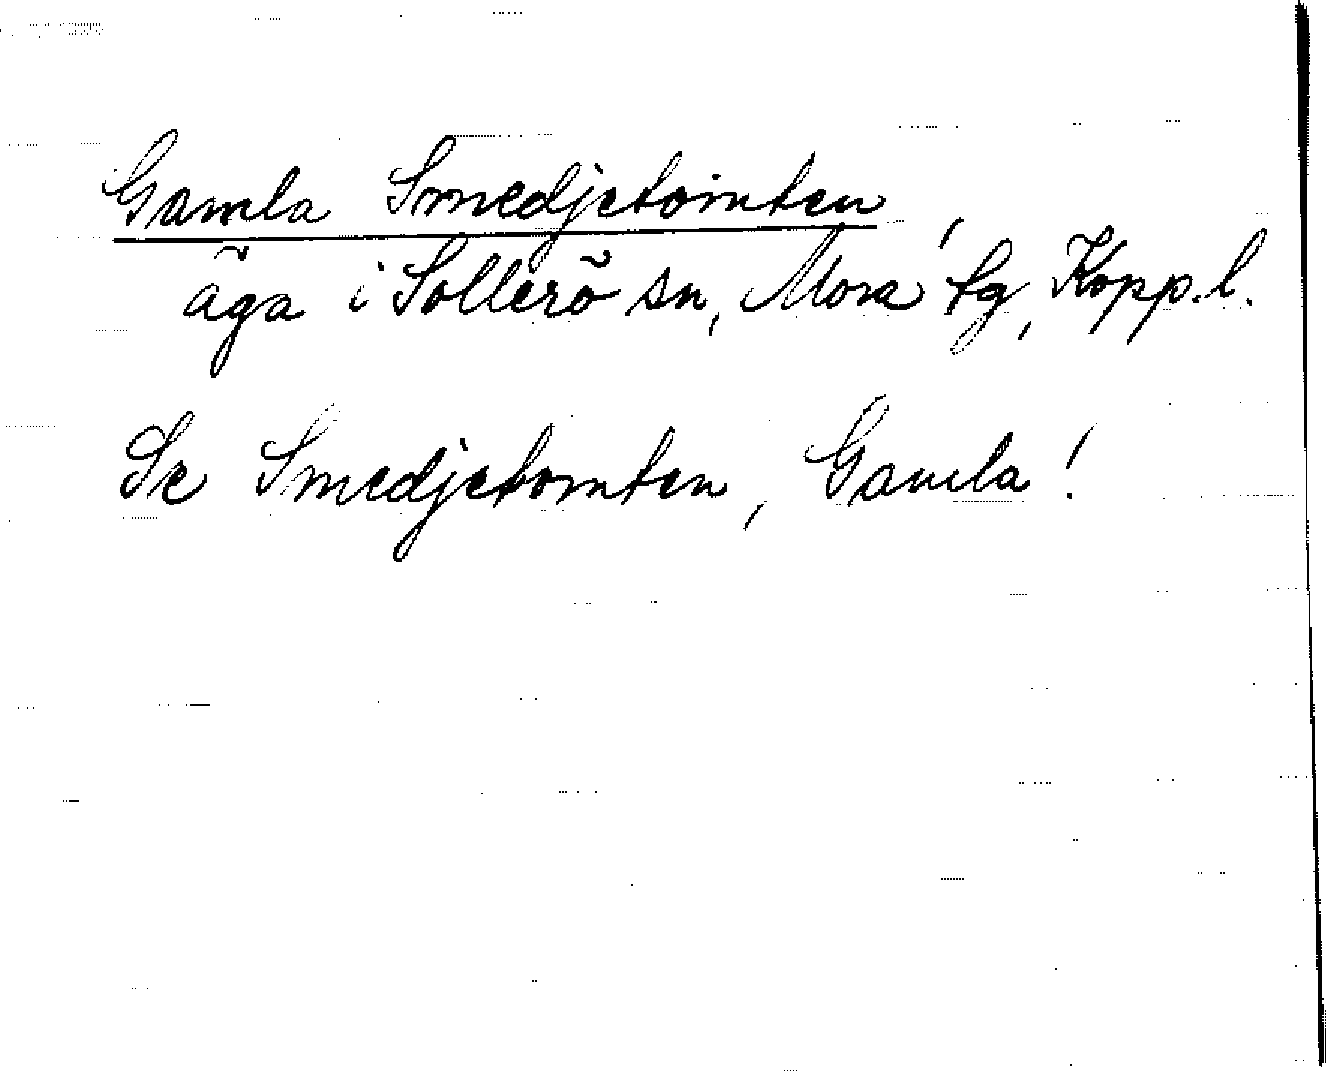 Gamla Smedjetomten,
äga i Sollerö sn, Mora tg, Kopp.l.
Se Smedjetomten, Gamla!